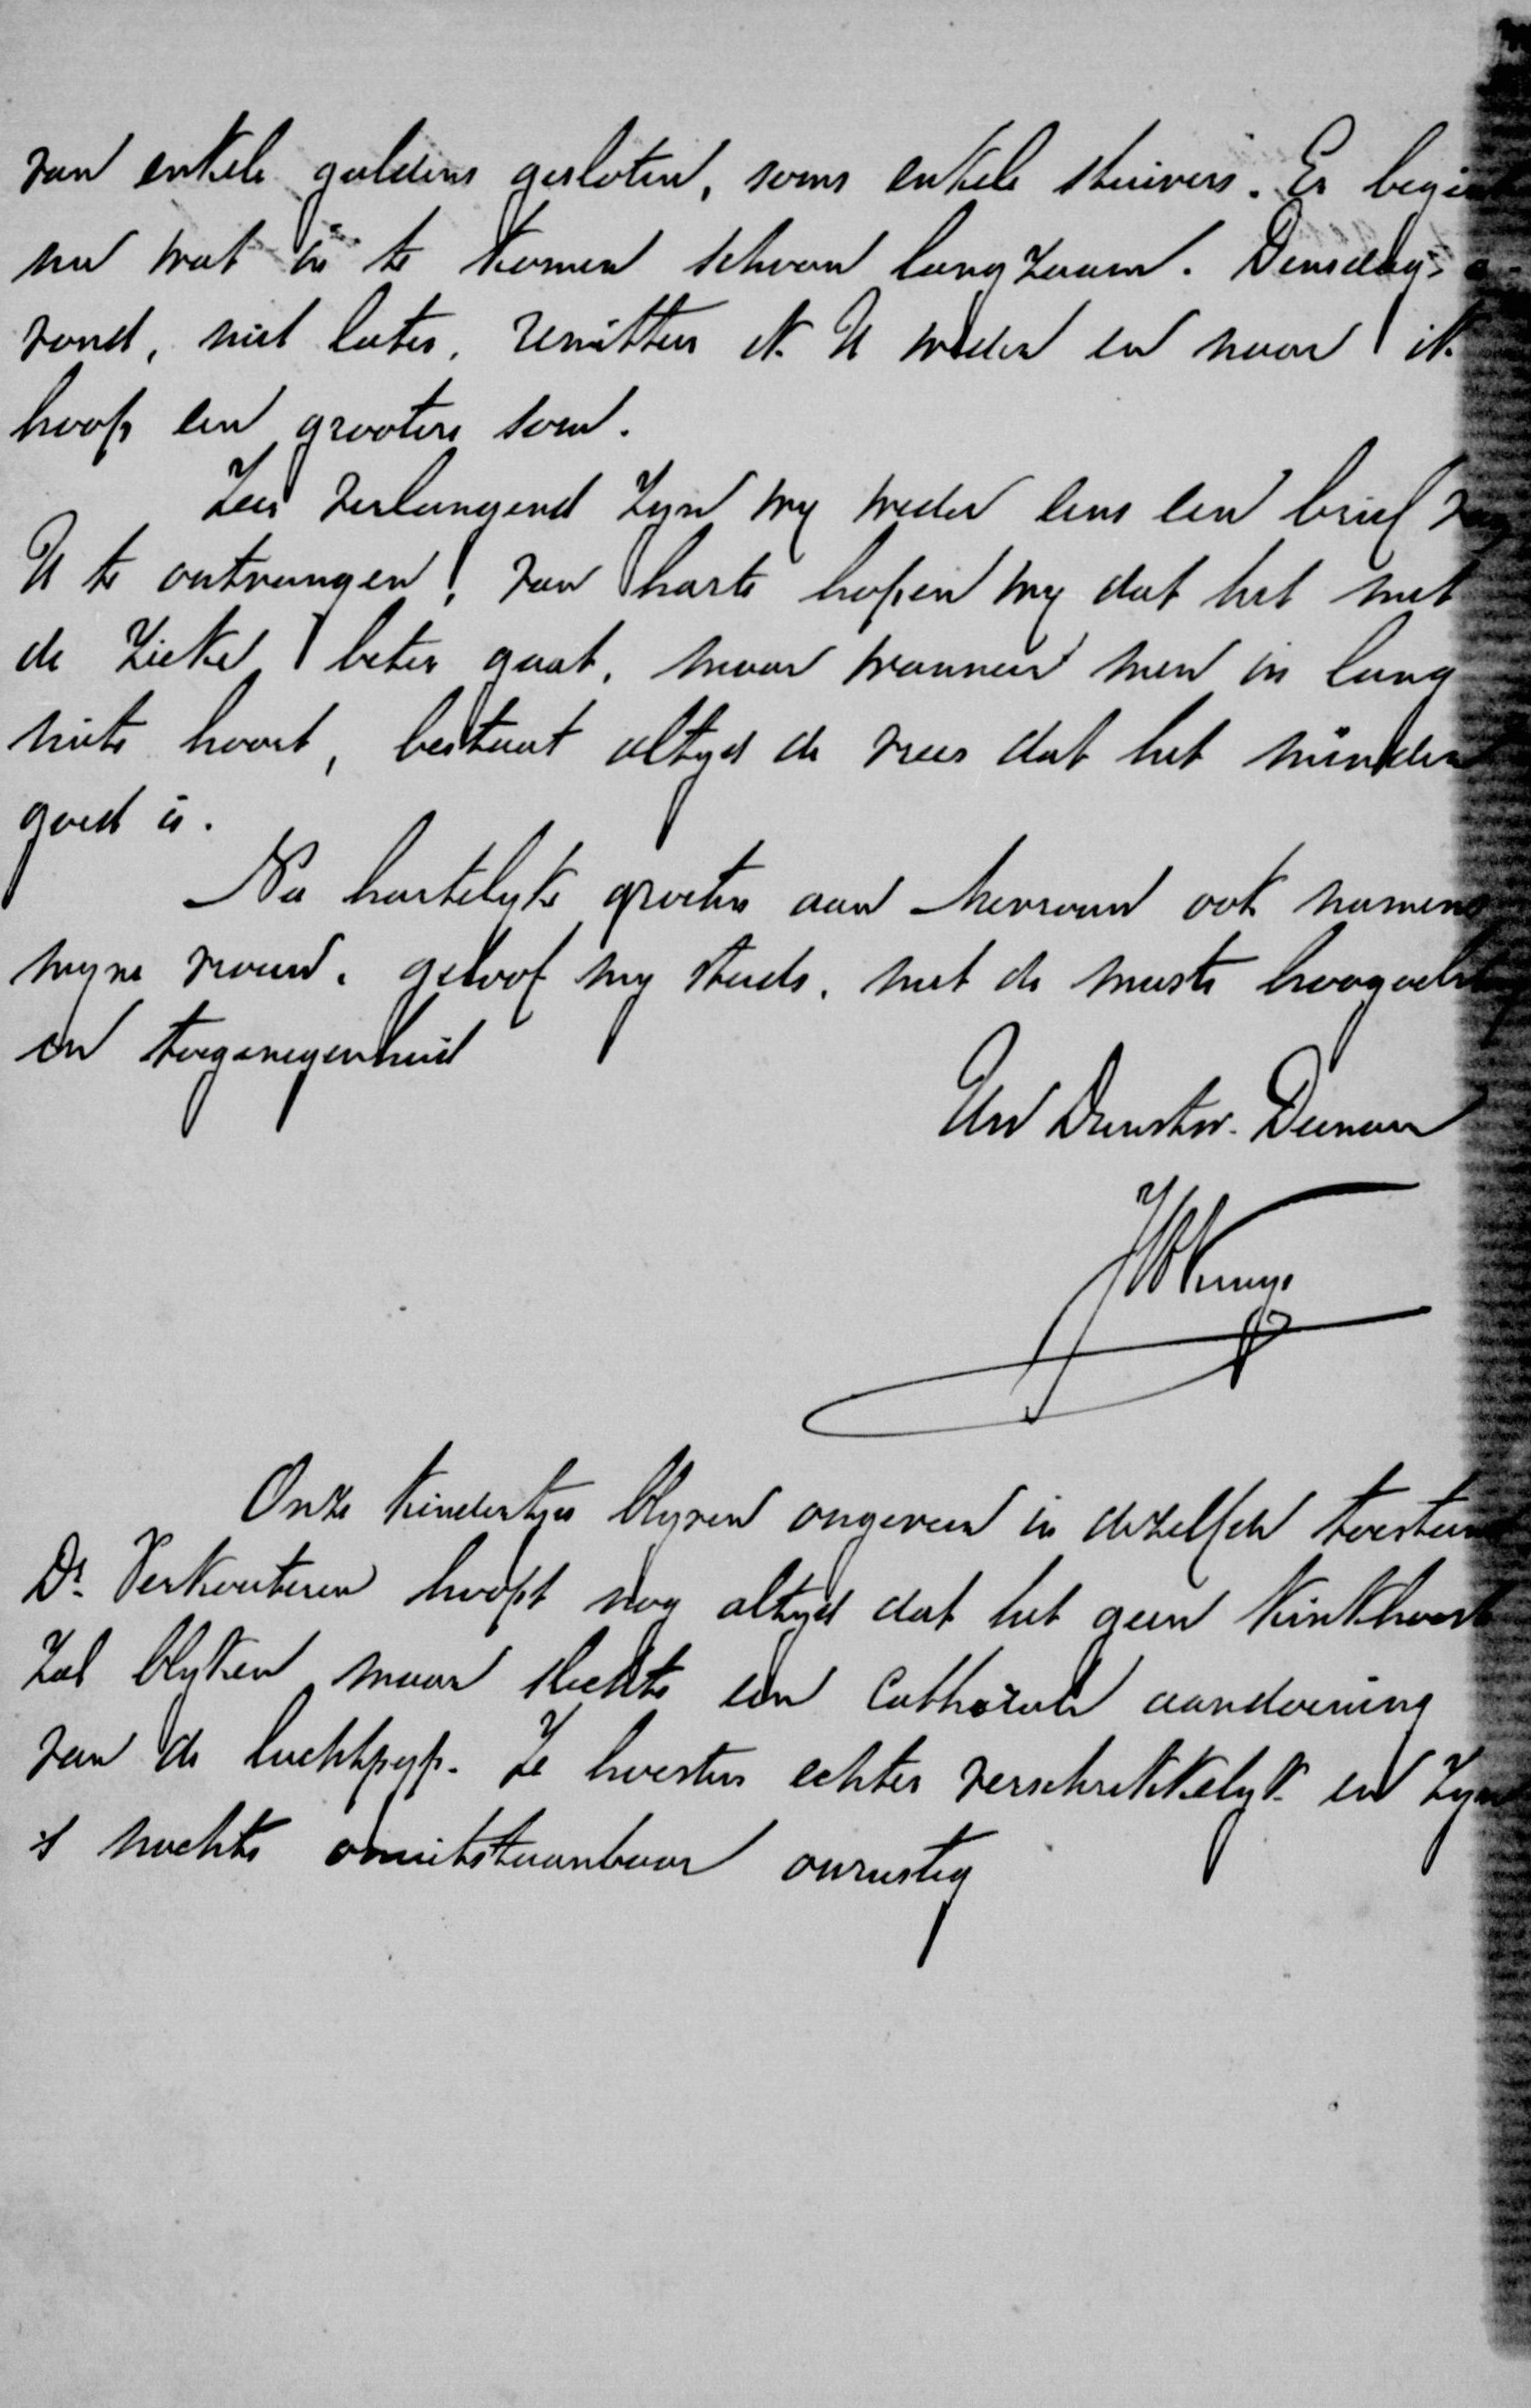 van enkele guldens gesloten, soms enkele stuivers. Er begint
nu wat in te komen schoon langzaam. Dinsdag a-
vond, niet later, remitteer ik U weder en naar ik
hoop een grootere som.
Zeer verlangend zyn wy weder eens een brief van
U te ontvangen, van harte hopen wy dat het met
de zieke beter gaat, maar wanneer men in lang
niets hoort, bestaat altyd de vrees dat het minder
goed is.
Na hartelyke groeten aan Mevrouw ook namens
myne vrouw, geloof my steeds, met de meeste hoogacht
en toegenegenheid
Uw Dienstw. Dienaar
Onze kindertjes blyven ongeveer in dezelfde toestand
Dr. Verkouteren hoopt nog altyd dat het geen kinkhoest
zal blyken maar slechts een catharale aandoening
van de luchtpyp. Ze hoesten echter verschrikkelyk en zyn
's nachts onuitstaanbaar onrustig